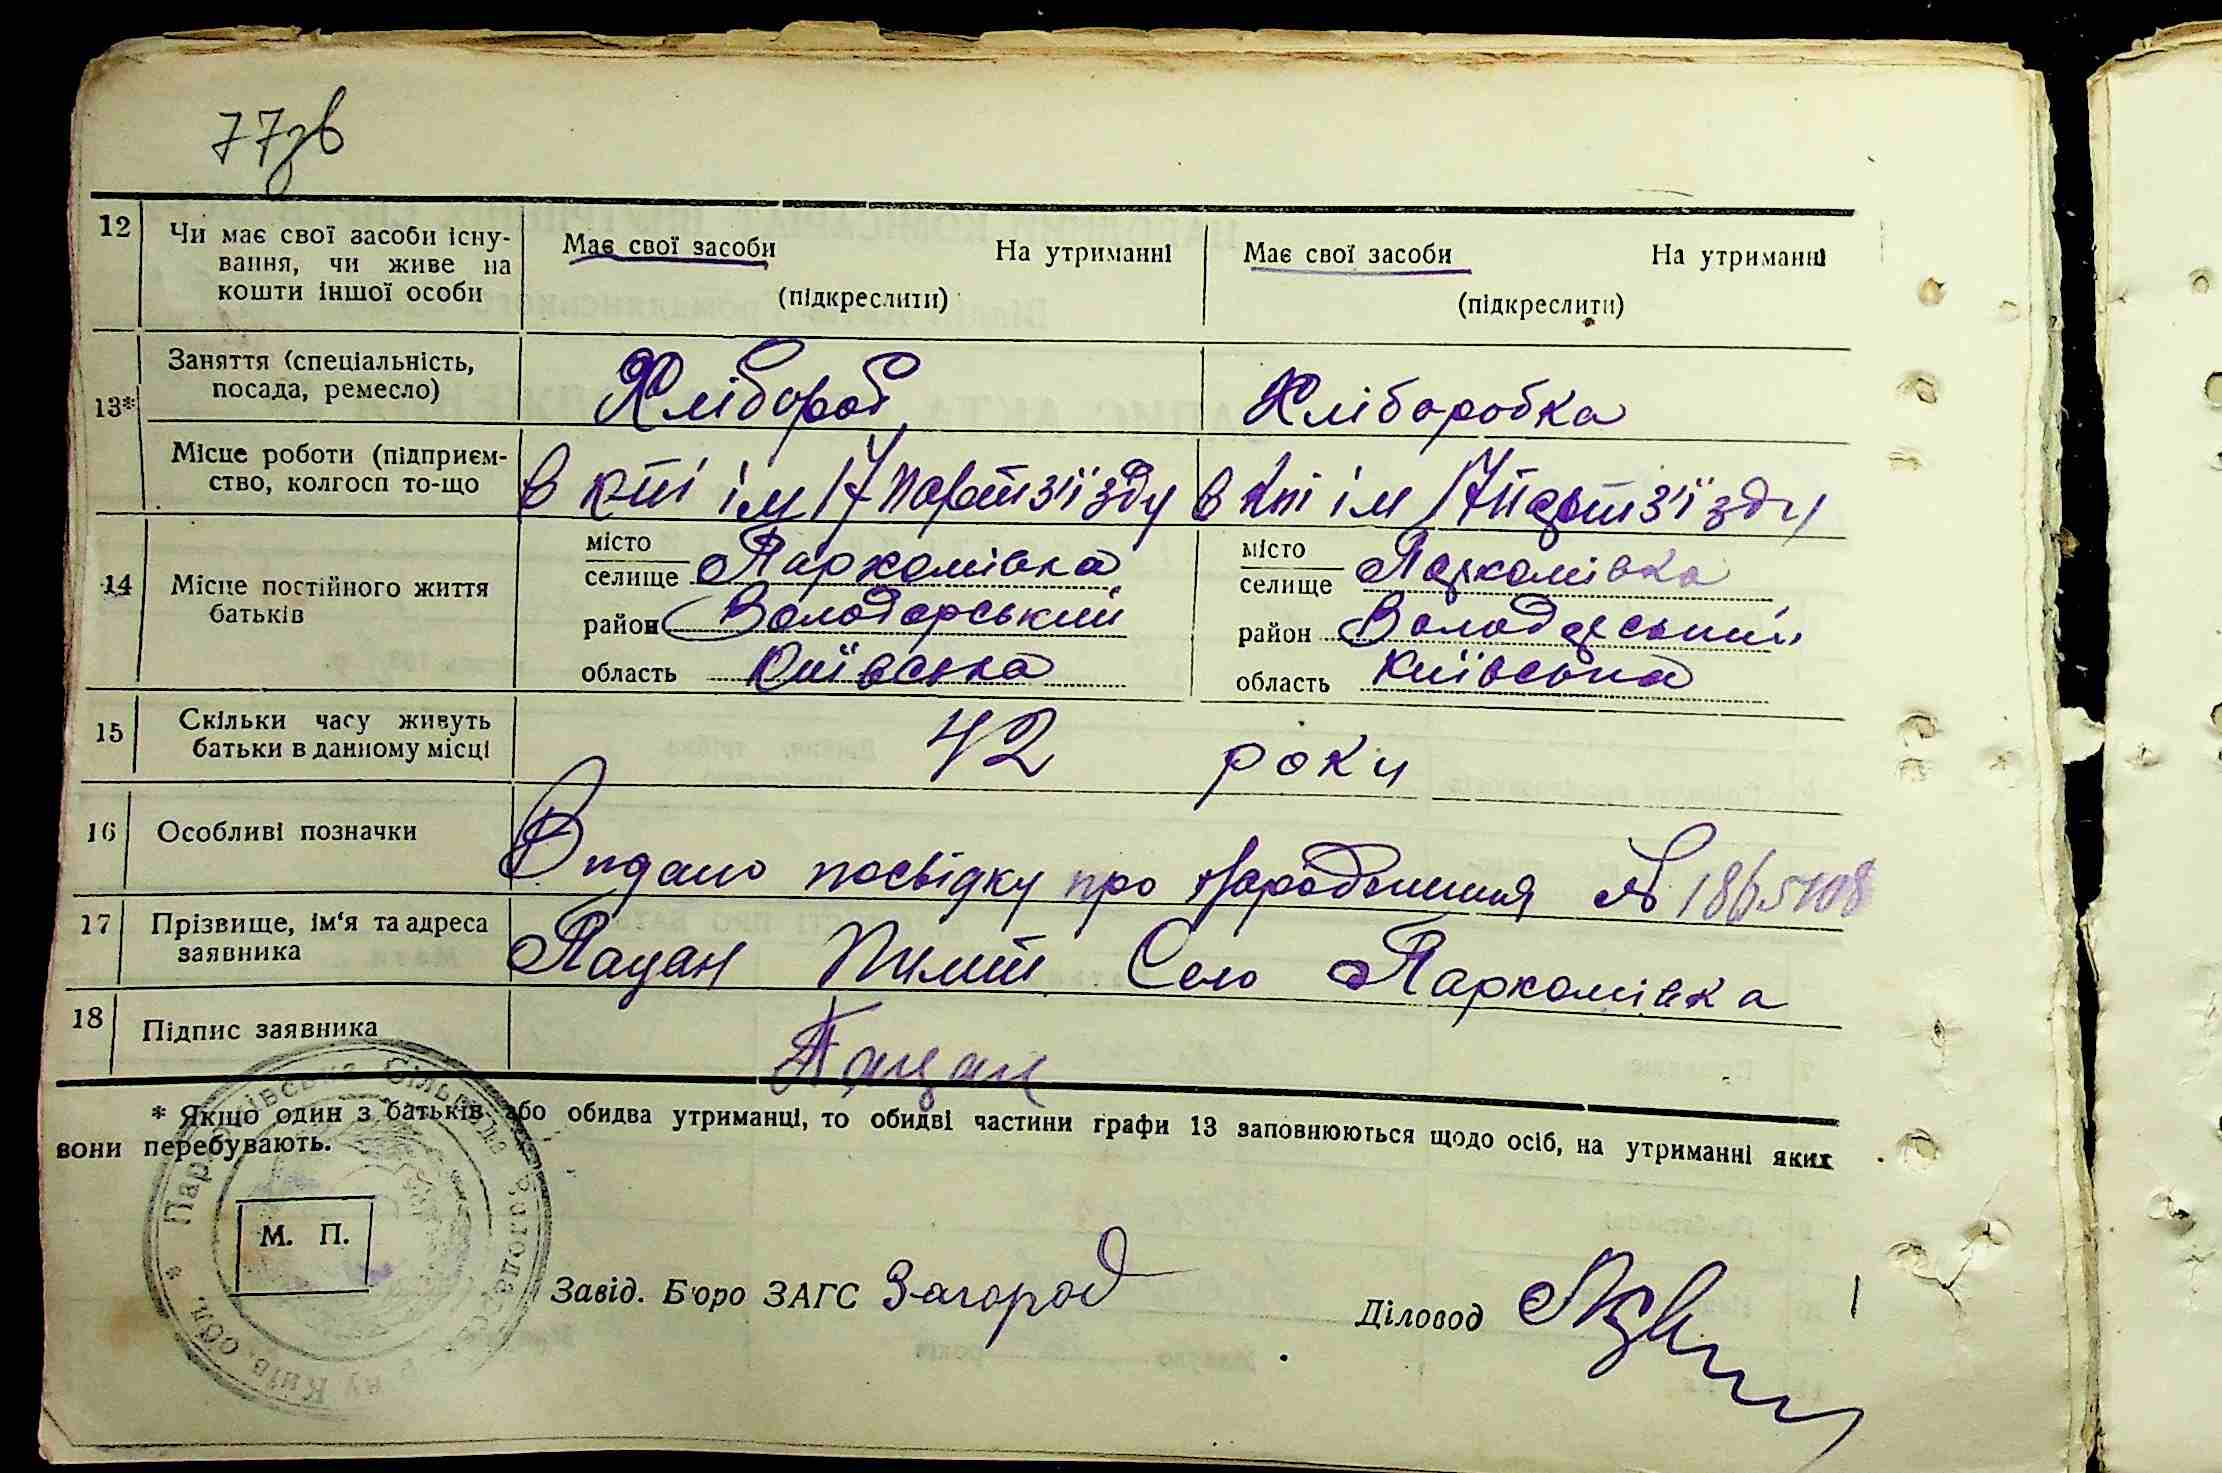 77зв
12 Чи має свої засоби існу- Має свої засоби На утриманні Має свої засоби На утриманні
вання, чи живе на
кошти іншої особи (підкреслити) (підкреслити)
13* Заняття (спеціальність, Хлібороб Хліборобка
посада, ремесло)
Місце роботи (підприєм- в кті ім 17 партз'їзду в кті ім 17 партз'їзду
ство, колгосп то-що
14 Місце постійного життя батьків
місто місто
селище Пархомівка селище Пархомівка
район Володарський район Володарський
область Київська область Київська
15 Скільки часу живуть 42 роки
батьки в данному місці
16 Особливі позначки Видано посвідку про народження №
17 Прізвище, ім'я та адреса Пацан Пилип Село Пархомівка
заявника
18 Підпис заявника Пацан
* Якщо один з батьків або обидва утриманці, то обидві частини графи 13 заповнюються щодо осіб, на утриманні яких
вони перебувають.
М. П.
Завід. Бюро ЗАГС Загород Діловод